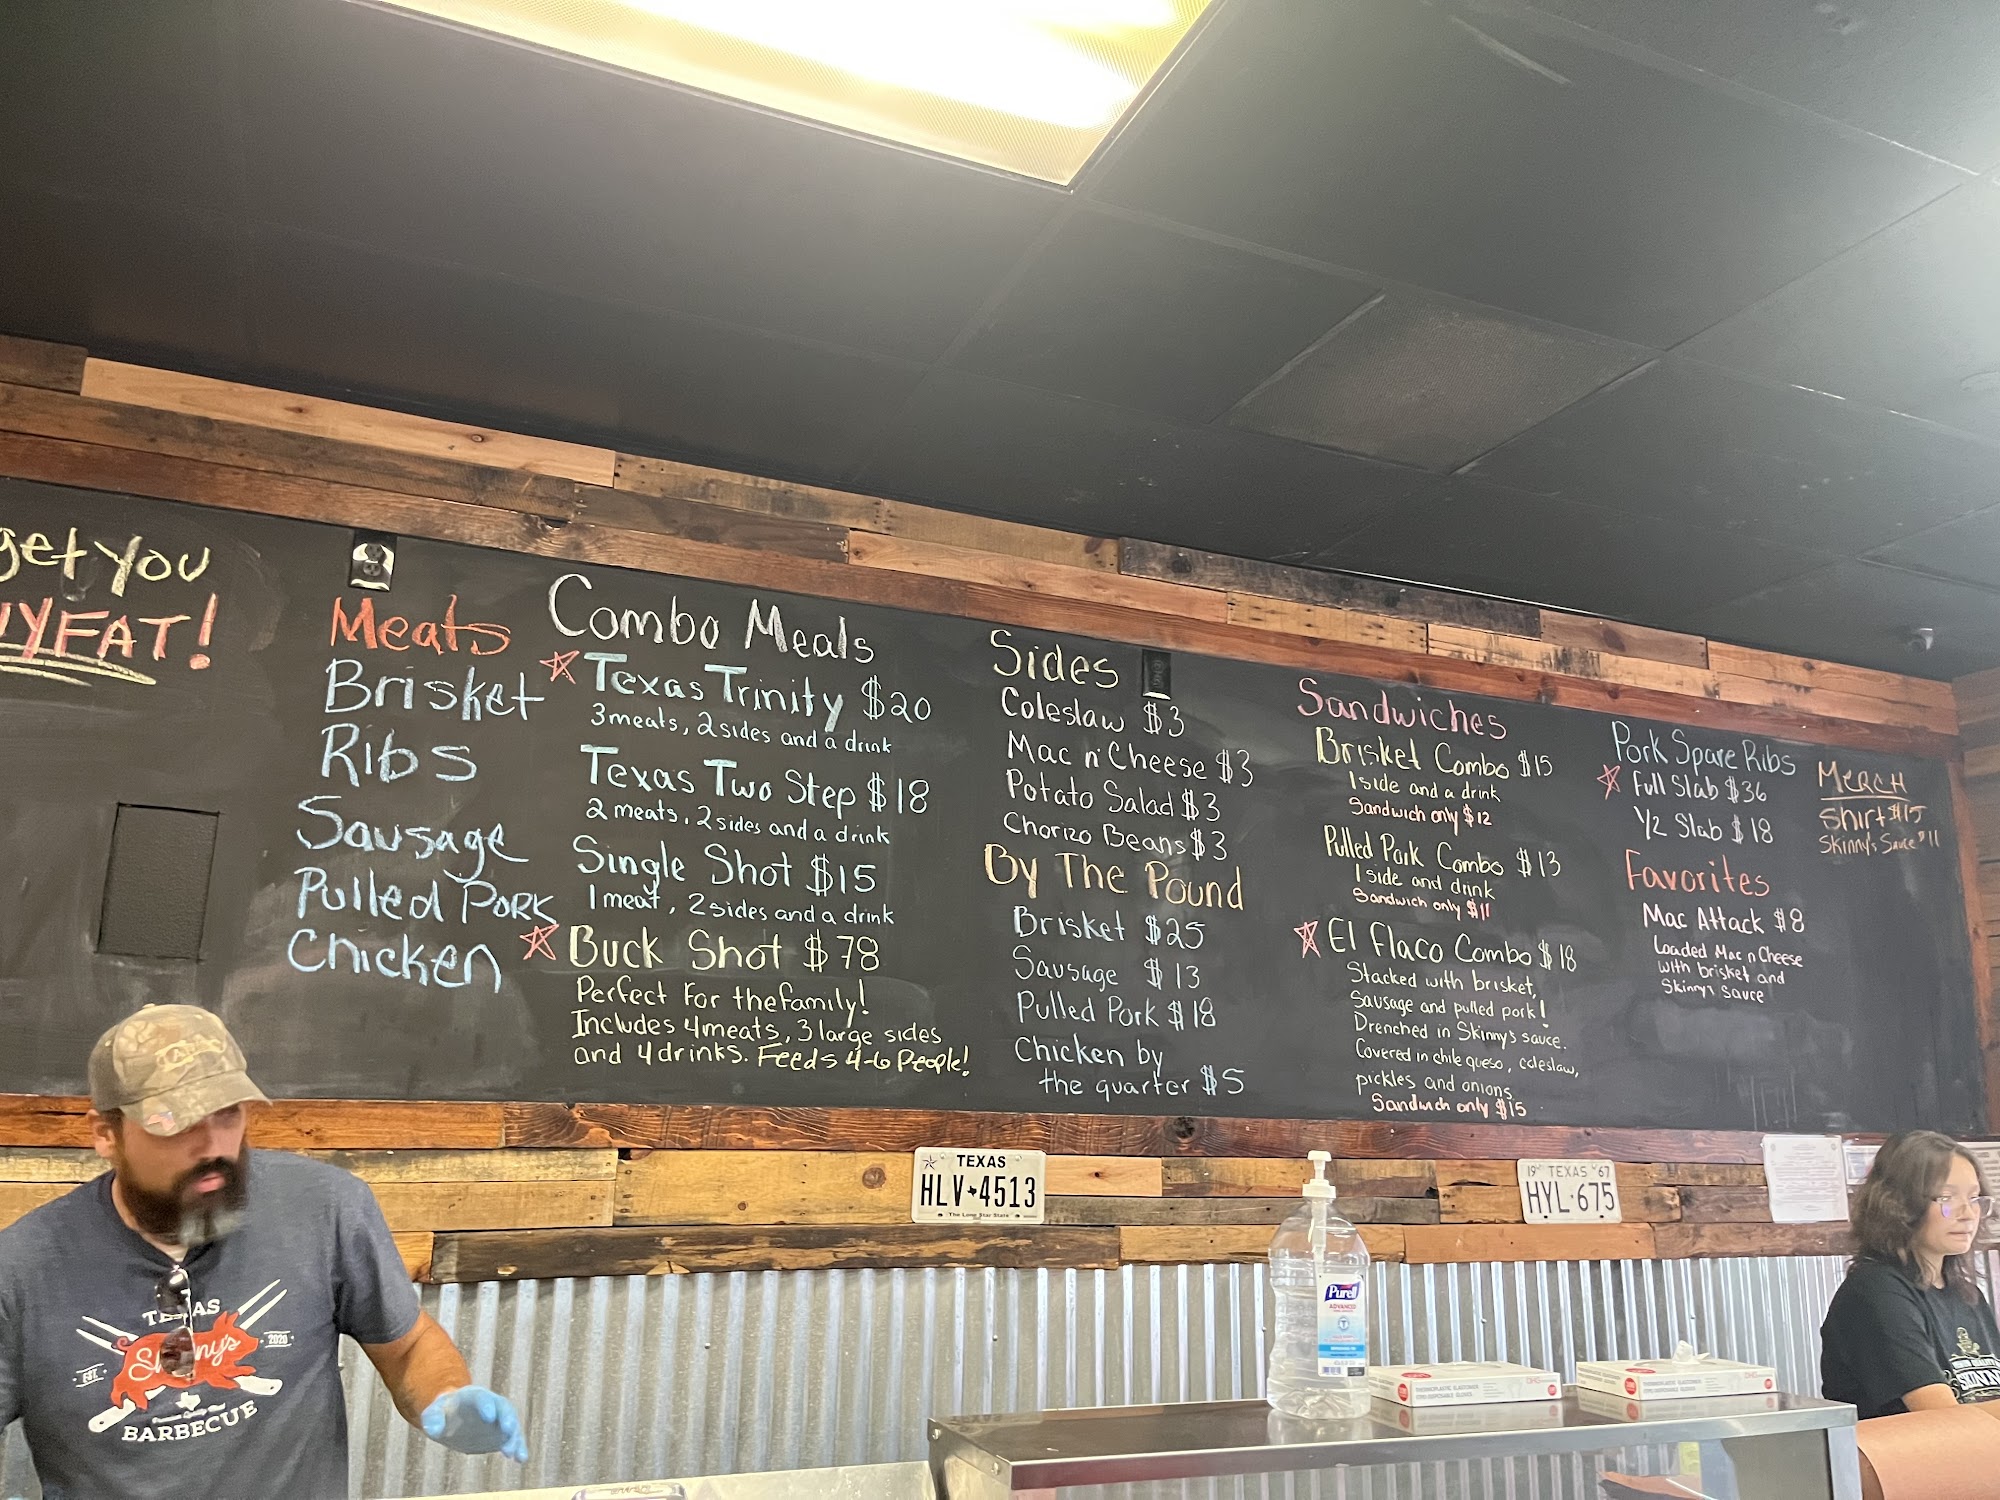 get You
Meats
Brisket
Ribs
Sausage
Pulled Pork
Chicken
Combo Meals
Texas Trinity $20
3 meats, 2 sides and a drink
Texas Two Step $18
2 meats, 2 sides and a drink
Single Shot $15
1 meat, 2 sides and a drink
Buck Shot $78
Perfect for the family!
Includes 4 meats, 3 large sides
and 4 drinks. Feeds 4-6 People!
Sides
Coleslaw $3
Mac n' Cheese $3
Potato Salad $3
Chorizo Beans $3
By The Pound
Brisket $25
Sausage $13
Pulled Pork $18
Chicken by
the quarter $5
Sandwiches
Brisket Combo $15
1 side and a drink
Sandwich only $12
Pulled Pork Combo $13
1 side and drink
Sandwich only $11
El Flaco Combo $18
Stacked with brisket,
Sausage and pulled pork!
Drenched in Skinny's sauce.
Covered in chile queso, coleslaw,
pickles and onions
Sandwich only $15
Pork Spare Ribs
Full Slab $36
1/2 Slab $18
Favorites
Mac Attack $8
Loaded Mac n Cheese
with brisket and
Skinny's sauce
Merch
Shirt $15
Skinny's Sauce $11
TEXAS
HLV 4513
The Lone Star State
19 TEXAS 67
HYL·675
Purell
ADVANCED
TEXAS
Skinny's
EST. 2020
BARBECUE